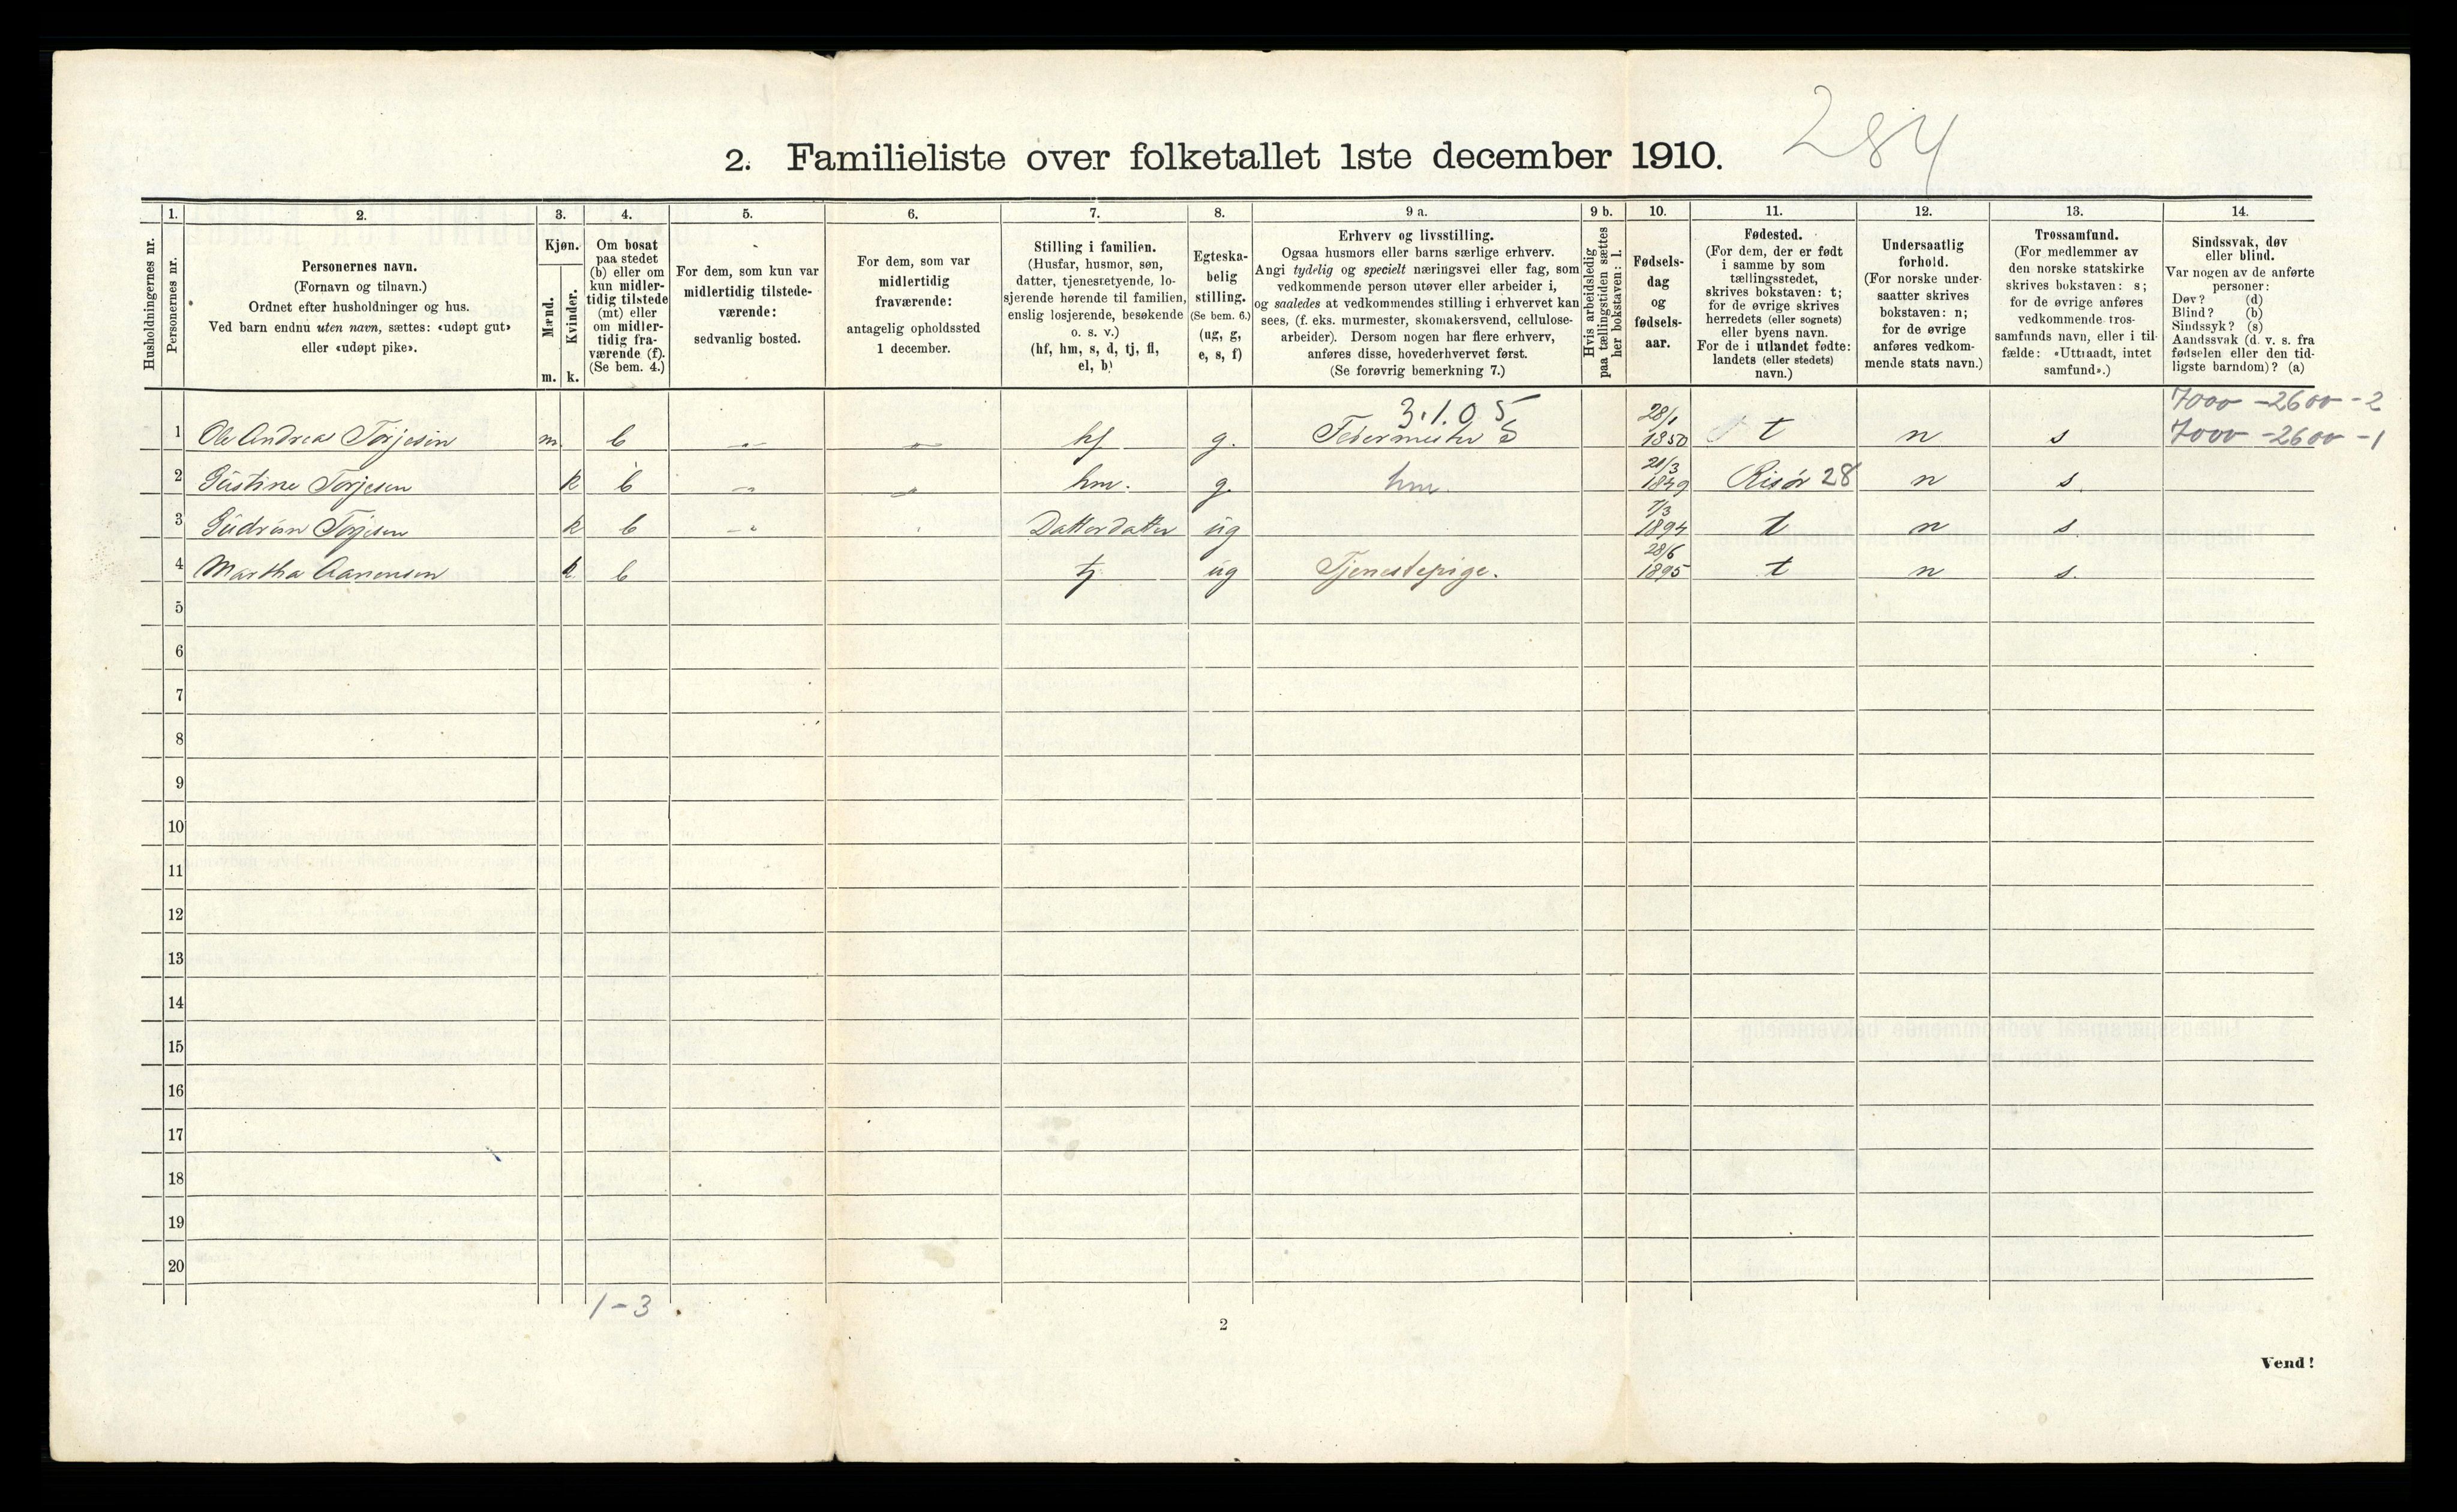 284
2. Familieliste over folketallet 1ste december 1910.
Husholdningernes nr.
1.
Personernes nr.
2.
Personernes navn.
(Fornavn og tilnavn.)
Ordnet efter husholdninger og hus.
Ved barn endnu uten navn, sættes: «udøpt gut»
eller «udøpt pike».
3.
Kjøn.
Mænd.
Kvinder.
m. k.
4.
Om bosat
paa stedet
(b) eller om
kun midler-
tidig tilstede
(mt) eller
om midler-
tidig fra-
værende (f).
(Se bem. 4.)
5.
For dem, som kun var
midlertidig tilstede-
værende:
sedvanlig bosted.
6.
For dem, som var
midlertidig
fraværende:
antagelig opholdssted
1 december.
7.
Stilling i familien.
(Husfar, husmor, søn,
datter, tjenestetyende, lo-
sjerende hørende til familien,
enslig losjerende, besøkende
o. s. v.)
(hf, hm, s, d, tj, fl,
el, b)
8.
Egteska-
belig
stilling.
(Se bem. 6.)
(ug, g,
e, s, f)
9 a.
Erhverv og livsstilling.
Ogsaa husmors eller barns særlige erhverv.
Angi tydelig og specielt næringsvei eller fag, som
vedkommende person utøver eller arbeider i,
og saaledes at vedkommendes stilling i erhvervet kan
sees, (f. eks. murmester, skomakersvend, cellulose-
arbeider). Dersom nogen har flere erhverv,
anføres disse, hovederhvervet først.
(Se forøvrig bemerkning 7.)
9 b.
Hvis arbeidsledig
paa tællingstiden sættes
her bokstaven: l.
10.
Fødsels-
dag
og
fødsels-
aar.
11.
Fødested.
(For dem, der er født
i samme by som
tællingsstedet,
skrives bokstaven: t;
for de øvrige skrives
herredets (eller sognets)
eller byens navn.
For de i utlandet fødte:
landets (eller stedets)
navn.)
12.
Undersaatlig
forhold.
(For norske under-
saatter skrives
bokstaven: n;
for de øvrige
anføres vedkom-
mende stats navn.)
13.
Trossamfund.
(For medlemmer av
den norske statskirke
skrives bokstaven: s;
for de øvrige anføres
vedkommende tros-
samfunds navn, eller i til-
fælde: «Uttraadt, intet
samfund».)
14.
Sindssvak, døv
eller blind.
Var nogen av de anførte
personer:
Døv? (d)
Blind? (b)
Sindssyk? (s)
Aandssvak (d. v. s. fra
fødselen eller den tid-
ligste barndom)? (a)
3.1.05 7000 - 2600 - 2
1 Ole Andreas Torjesen m. b hf g. S 28/1 1850 t n s 7000 - 2600 - 1
2 Torjesen k b hm. g. hm. 21/3 1849 Risør 28 n s.
3 Gudrun Torjesen k b Datterdatter ug 7/3 1894 t n s.
4 Martha Aanonsen k b tj ug Tjenestepige. 28/6 1895 t n s.
5
6
7
8
9
10
11
12
13
14
15
16
17
18
19
20
1 - 3
2
Vend!